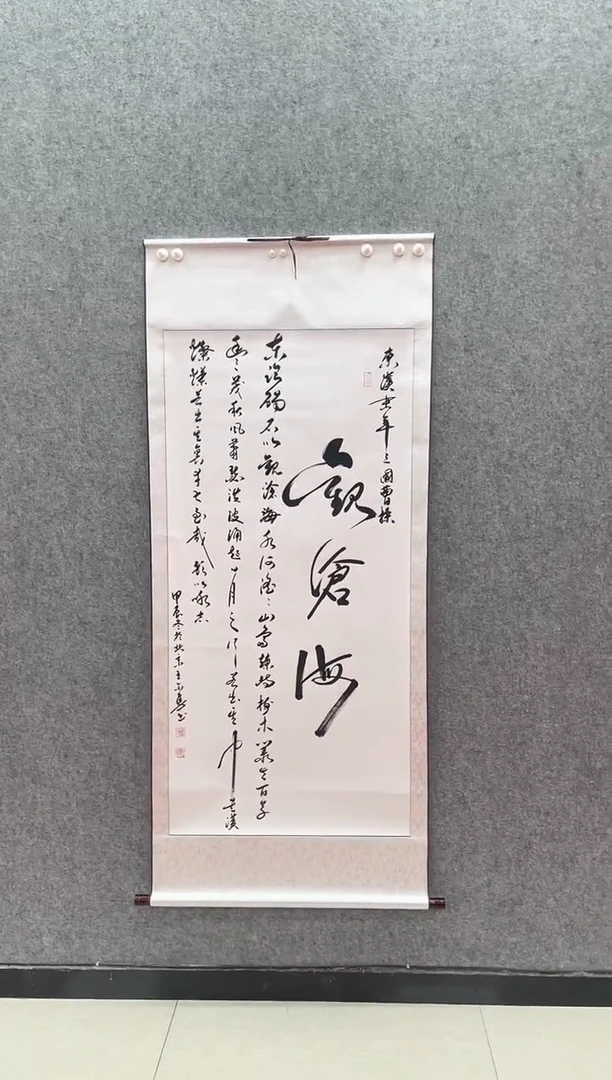 東漢末年三國曹操
觀滄海
东临碣石以觀滄海水何澹々山島竦峙樹木叢生百草
豐茂秋風蕭瑟洪波涌起日月之行若出其中星漢
燦爛若出其裏幸甚至哉歌以詠志
甲辰冬於北京王書